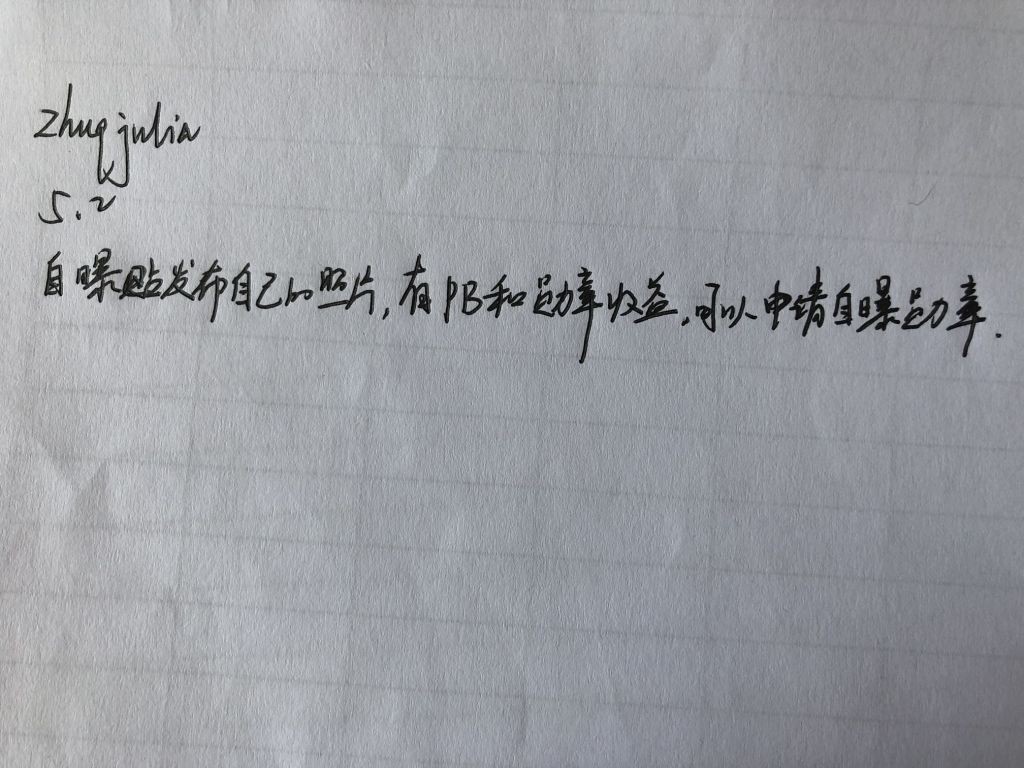 zhuqjulia
5.2
自曝贴发布自己的照片,有PB和勋章收益,可以申请自曝勋章.